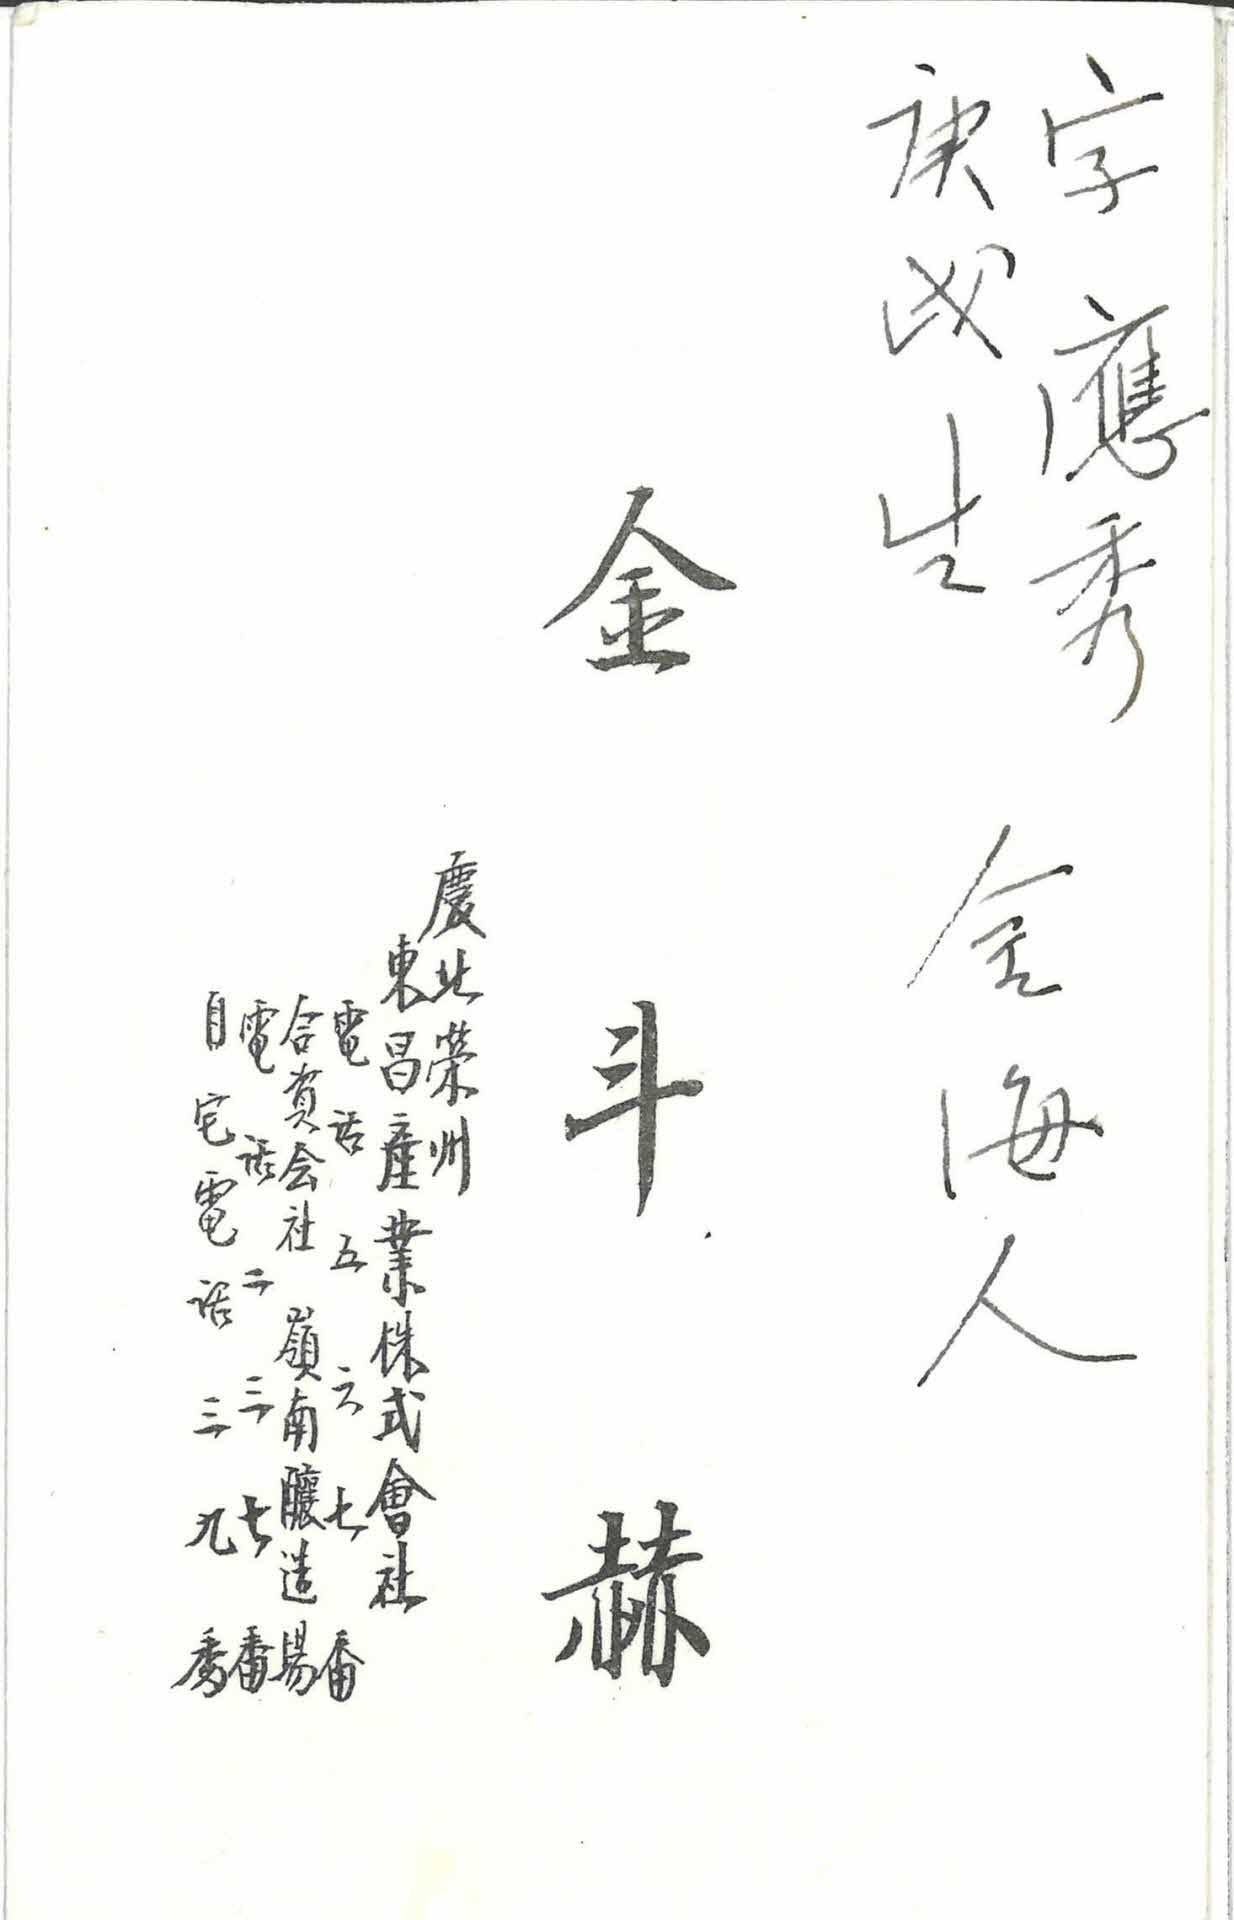 字應秀
庚戌生
金海人
金斗赫
慶北榮州
東昌産業株式會社
電話五六七番
合資会社 嶺南釀造場
電話二三七番
自宅電話三九番